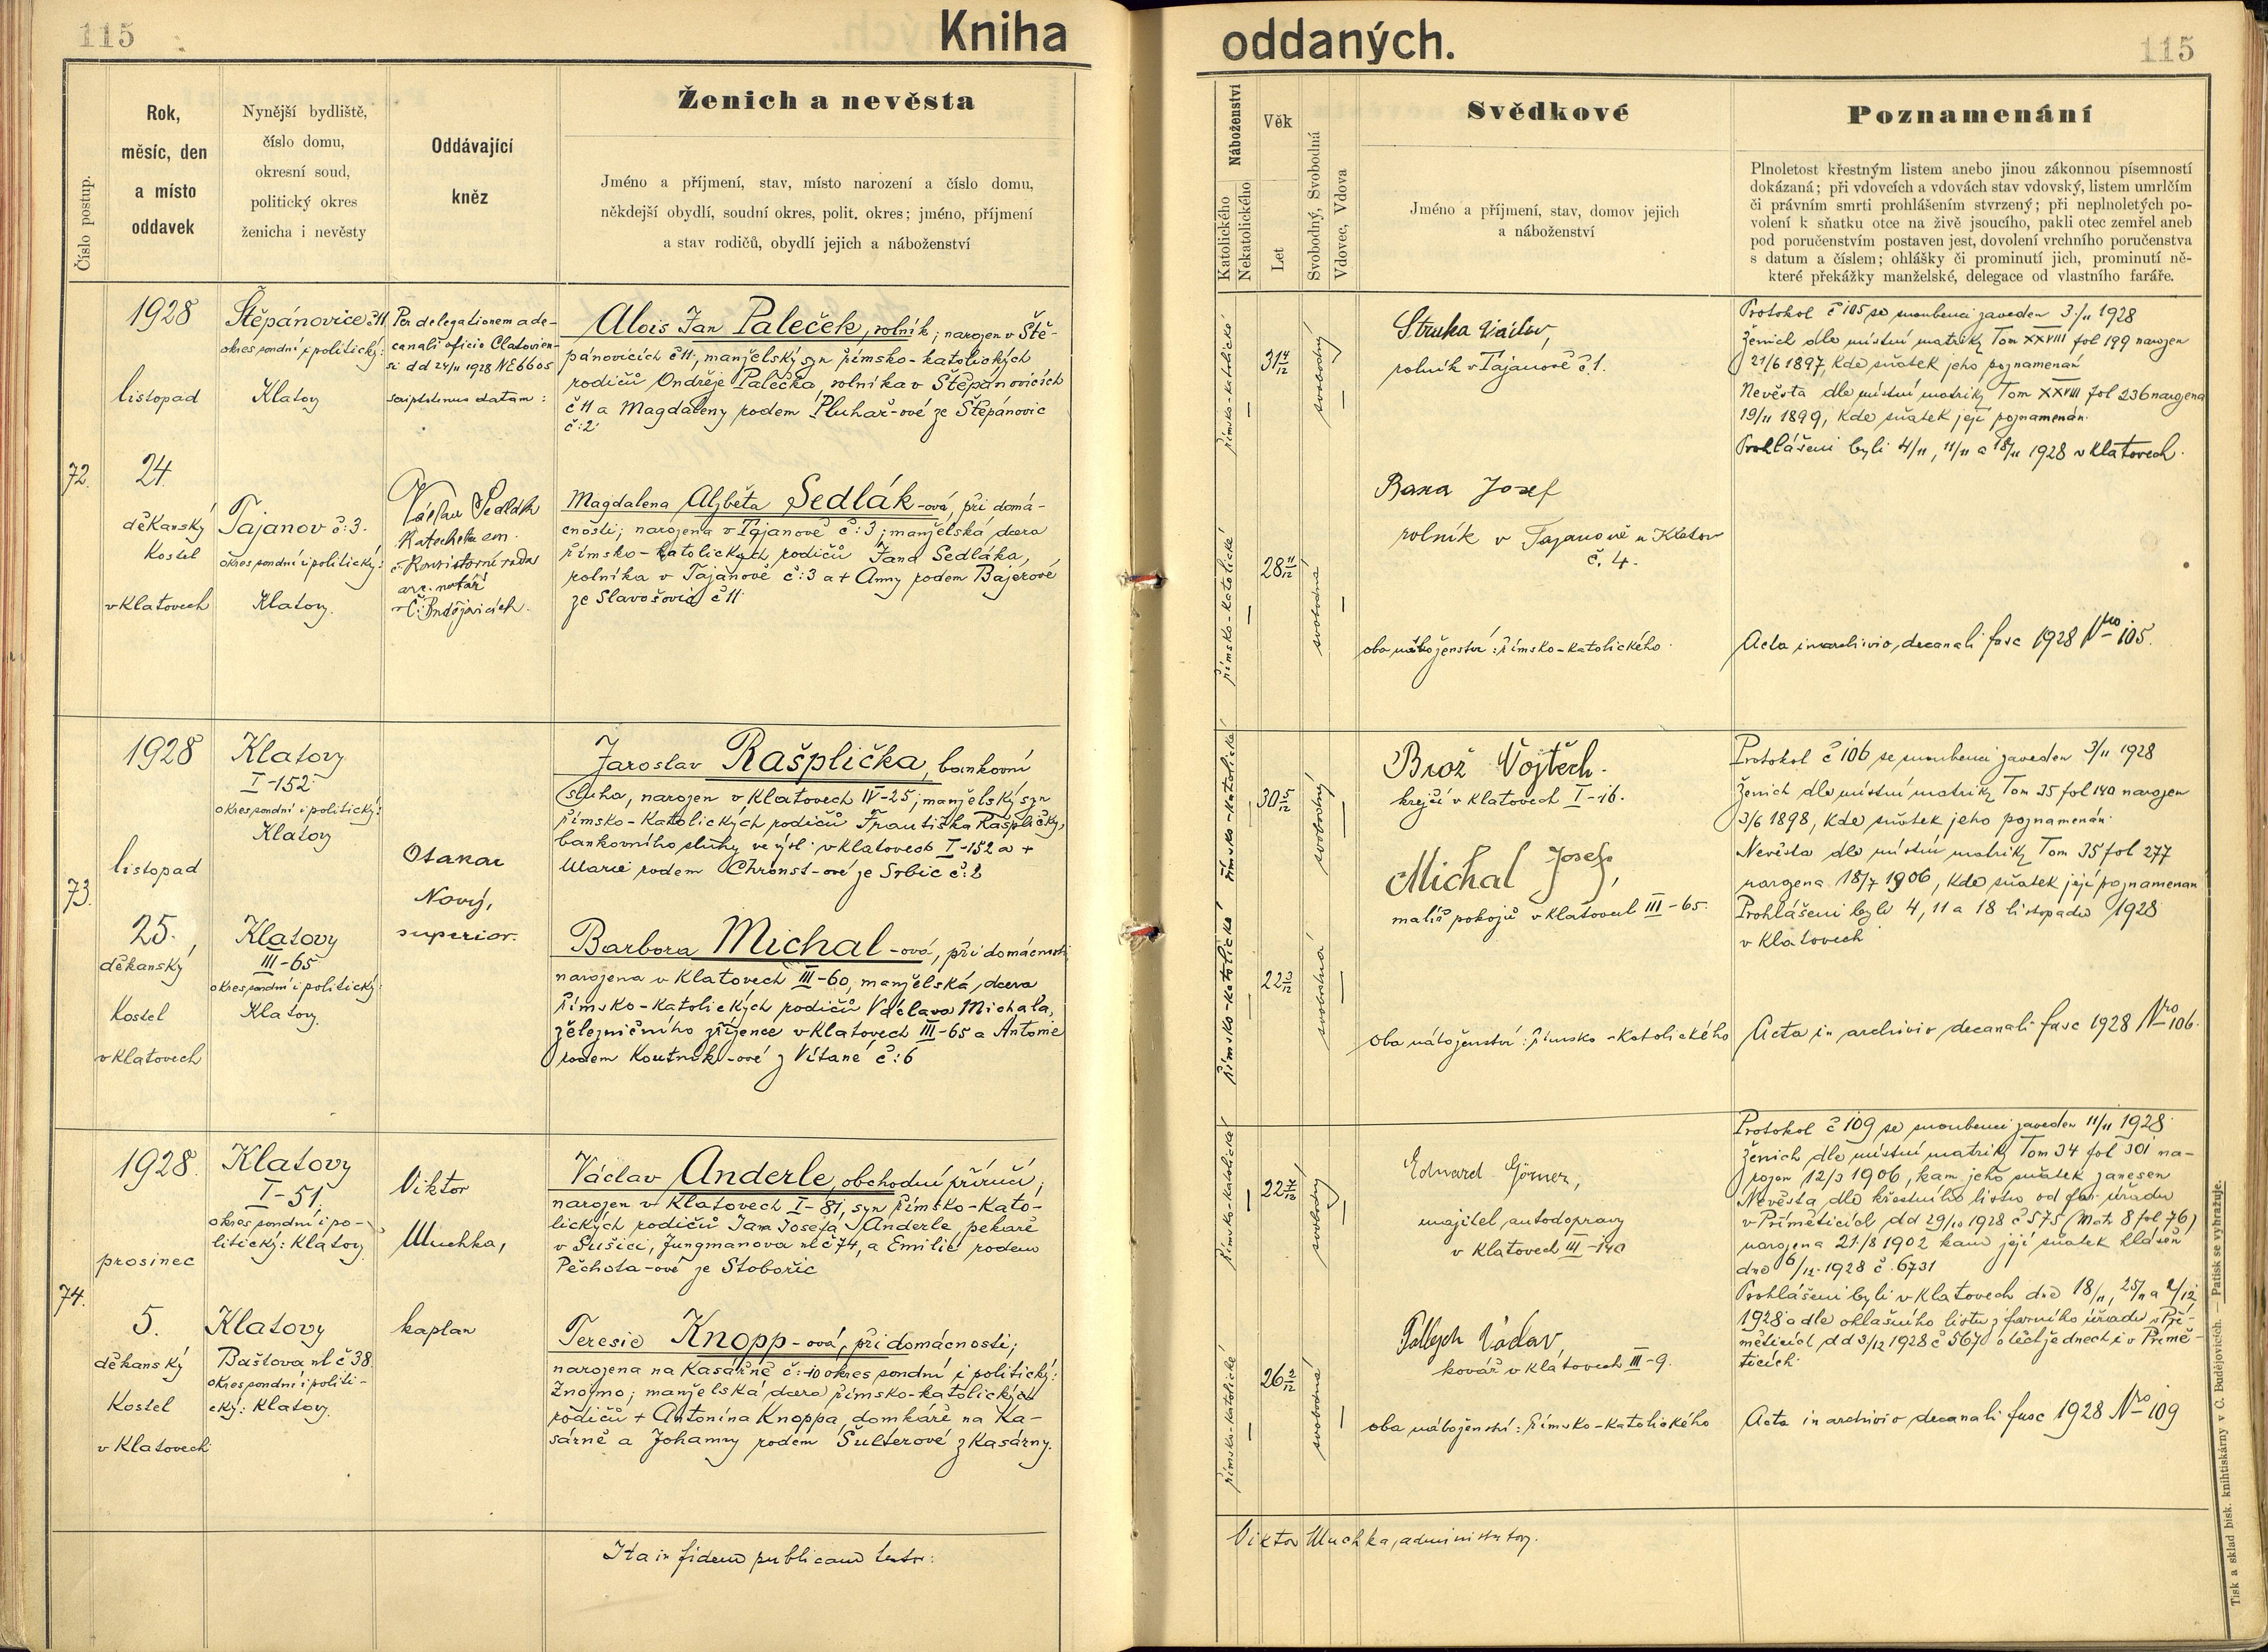 115
Kniha
oddaných.
115
Číslo postup.
Rok,
měsíc, den
a místo
oddavek
Nynější bydliště,
číslo domu,
okresní soud,
politický okres
ženicha i nevěsty
Oddávající
kněz
Ženich a nevěsta
Jméno a příjmení, stav, místo narození a číslo domu,
někdejší obydlí, soudní okres, polit. okres; jméno, příjmení
a stav rodičů, obydlí jejich a náboženství
Náboženství
Katolického
Nekatolického
Věk
Let
Svobodný, Svobodná
Vdovec, Vdova
Svědkové
Jméno a příjmení, stav, domov jejich
a náboženství
Poznamenání
Plnoletost křestným listem anebo jinou zákonnou písemností
dokázaná; při vdovcích a vdovách stav vdovský, listem umrlčím
či právním smrti prohlášením stvrzený; při neplnoletých po-
volení k sňatku otce na živě jsoucího, pakli otec zemřel aneb
pod poručenstvím postaven jest, dovolení vrchního poručenstva
s datum a číslem; ohlášky či prominutí jich, prominutí ně-
které překážky manželské, delegace od vlastního faráře.
72.
1928
listopad
24.
děkanský
kostel
v Klatovech
Štěpánovice č 11
okres soudní i politický:
Klatovy
Tajanov č: 3.
okres soudní i politický:
Klatovy.
Per delegationem a de-
canali officio Clatovien-
si d d 24/11 1928 NE 6605
datam:
Václav Sedlák
Katecheta em.
Konsistorní rada
arc. notář
v Č. Budějovicích.
Alois Jan Paleček, rolník; narozen v Ště-
pánovicích č 11; manželský syn římsko-katolických
rodičů Ondřeje Palečka, rolníka v Štěpánovicích
č 11 a Magdaleny rodem Pluhař-ové ze Štěpánovic
č: 2
Magdalena Alžběta Sedlák-ová, při domá-
cnosti; narozena v Tajanově č: 3; manželská dcera
římsko-katolických rodičů Jana Sedláka,
rolníka v Tajanově č: 3 a + Anny rodem Bajerové
ze Slavošovic č 11
římsko-katolické
31 4/12
svobodný
římsko-katolické
28 11/12
svobodná
Struka Václav,
rolník v Tajanově č. 1.
Bana Josef
rolník v Tajanově u Klatov
č. 4.
oba náboženství: římsko-katolického.
Protokol č 105 se snoubenci zaveden 3/11 1928
Ženich dle místní matriky Tom XXVIII fol 199 narozen
21/6 1897, kde sňatek jeho poznamenán
Nevěsta dle místní matriky Tom XXVIII fol 236 narozena
19/11 1899, kde sňatek její poznamenán.
Prohlášeni byli 4/11, 11/11 a 18/11 1928 v Klatovech.
Acta in archivio decanali fasc 1928 Nro 105.
73.
1928
listopad
25.,
děkanský
Kostel
v Klatovech
Klatovy
I-152
okres soudní i politický:
Klatovy
Klatovy
III-65
okres soudní i politický:
Klatovy.
Otakar
Nový,
superior.
Jaroslav Rašplička, bankovní
sluha, narozen v Klatovech IV-25; manželský syn
římsko-katolických rodičů Františka Rašpličky,
bankovního sluhy ve výsl. v Klatovech I-152 a +
Marie rodem Chronst-ové ze Srbic č: 2
Barbora Michal-ová, při domácnosti
narozena v Klatovech III-60, manželská dcera
římsko-katolických rodičů Václava Michala,
železničního zřízence v Klatovech III-65 a Antonie
rodem Koutník-ové z Vítaně č: 6
římsko-katolické
30 5/12
svobodný
římsko-katolické
22 3/12
svobodná
Brož Vojtěch.
krejčí v Klatovech I-16.
Michal Josef,
malíř pokojů v Klatovech III-65.
oba náboženství: římsko-katolického
Protokol č 106 se snoubenci zaveden 3/11 1928
Ženich dle místní matriky Tom 35 fol 140 narozen
3/6 1898, kde sňatek jeho poznamenán.
Nevěsta dle místní matriky Tom 35 fol 277
narozena 18/7 1906, kde sňatek její poznamenán
Prohlášeni byli 4, 11 a 18 listopadu 1928
v Klatovech
Acta in archivio decanali fasc 1928 Nro 106.
74.
1928.
prosinec
5.
děkanský
Kostel
v Klatovech
Klatovy
I-51,
okres soudní i po-
litický: Klatovy
Klatovy
Baštova ul č 38
okres soudní i politi-
cký: Klatovy.
Viktor
Muchka,
kaplan
Václav Anderle, obchodní příručí;
narozen v Klatovech I-81, syn římsko-kato-
lických rodičů Jana Josefa Anderle pekaře
v Sušici, Jungmanova ul č 74, a Emilie rodem
Pěchota-ové ze Stobořic
Teresie Knopp-ová, při domácnosti;
narozena na Kasárně č: 10 okres soudní i politický:
Znojmo; manželská dcera římsko-katolických
rodičů + Antonína Knoppa, domkáře na Ka-
sárně a Johanny rodem Šulterové z Kasárny.
římsko-katolické
22
svobodný
římsko-katolické
26
svobodná
Eduard Görner,
majitel autodopravy
v Klatovech III-140
Václav
kovář v Klatovech III-9.
oba náboženství: římsko-katolického
Protokol č 109 se snoubenci zaveden 11/11 1928
Ženich dle místní matriky Tom 34 fol 301 na-
rozen 12/3 1906, kam jeho sňatek zanesen
Nevěsta dle křestního listu od far. úřadu
v Příměticích dd 29/10 1928 č 575 (Matr 8 fol 76)
narozena 21/8 1902 kam její sňatek hlášen
dne 6/12 1928 č. 6731
Prohlášeni byli v Klatovech dne 18/11, 25/11 a 2/12
1928 a dle ohlašního listu z farního úřadu v Pří-
měticích dd 3/12 1928 č 567 v téže dnech i v Přímě-
ticích.
Acta in archivio decanali fasc 1928 Nro 109
Ita in fidem publicam testor:
Viktor Muchka, administrator.
Tisk a sklad bisk. knihtiskárny v Č. Budějovicích. — Patisk se vyhražuje.